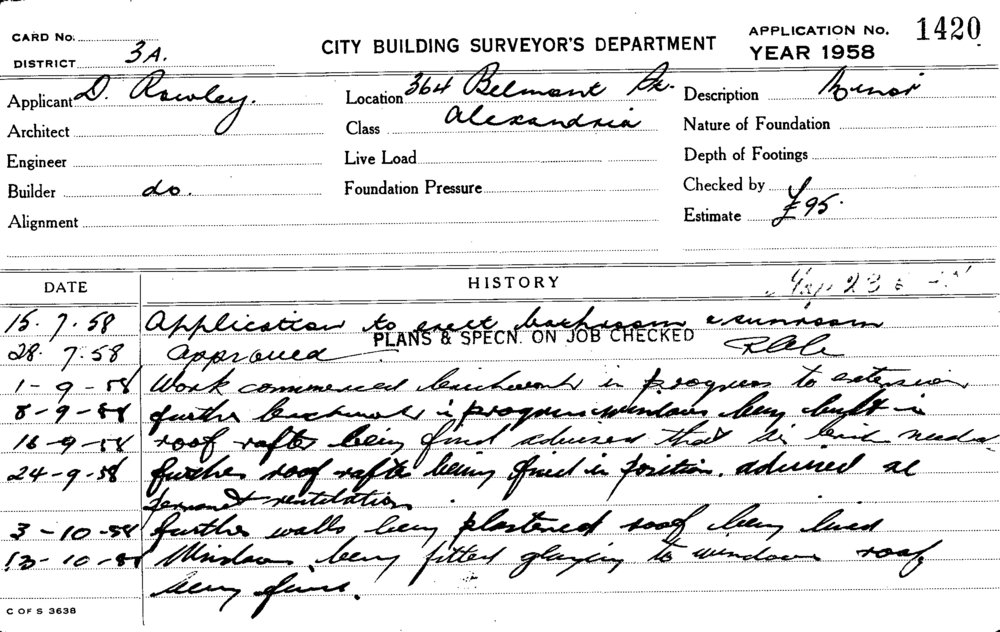 CARD No.
DISTRICT 3A.
CITY BUILDING SURVEYOR'S DEPARTMENT
APPLICATION No. 1420
YEAR 1958
Applicant D. Rowley.
Location 364 Belmont
Description Minor
Architect
Class Alexandria
Nature of Foundation
Engineer
Live Load
Depth of Footings
Builder do.
Foundation Pressure
Checked by
Alignment
Estimate £95.
DATE HISTORY
15.7.58 Application to erect bathroom & sunroom
PLANS & SPECN. ON JOB CHECKED
28.7.58 Approved
1-9-58 Work commenced brickwork in progress to extension
8-9-58 further brickwork in progress windows being built in
16-9-58 roof rafters being fixed advised that
24-9-58 further roof rafters being fixed in position. advised
ventilation
3-10-58 further walls being plastered roof being lined
13-10-58 Windows being fitted glazing to windows roof
being
C OF S 3638